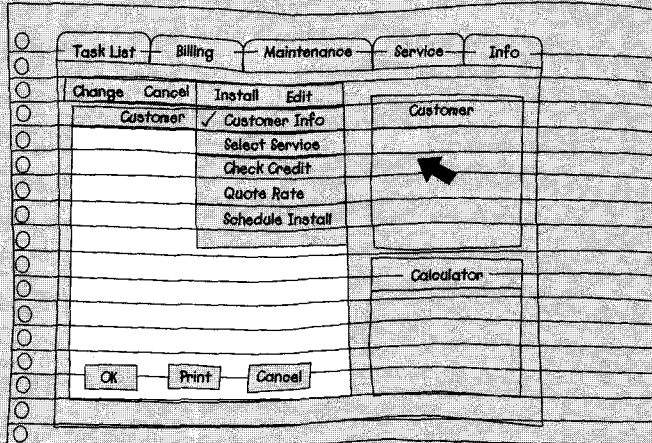 Task List Billing Maintenance Service Info
Change Cancel Install Edit
Customer
✓ Customer Info
Select Service
Check Credit
Quote Rate
Schedule Install
Customer
Calculator
OK Print Cancel